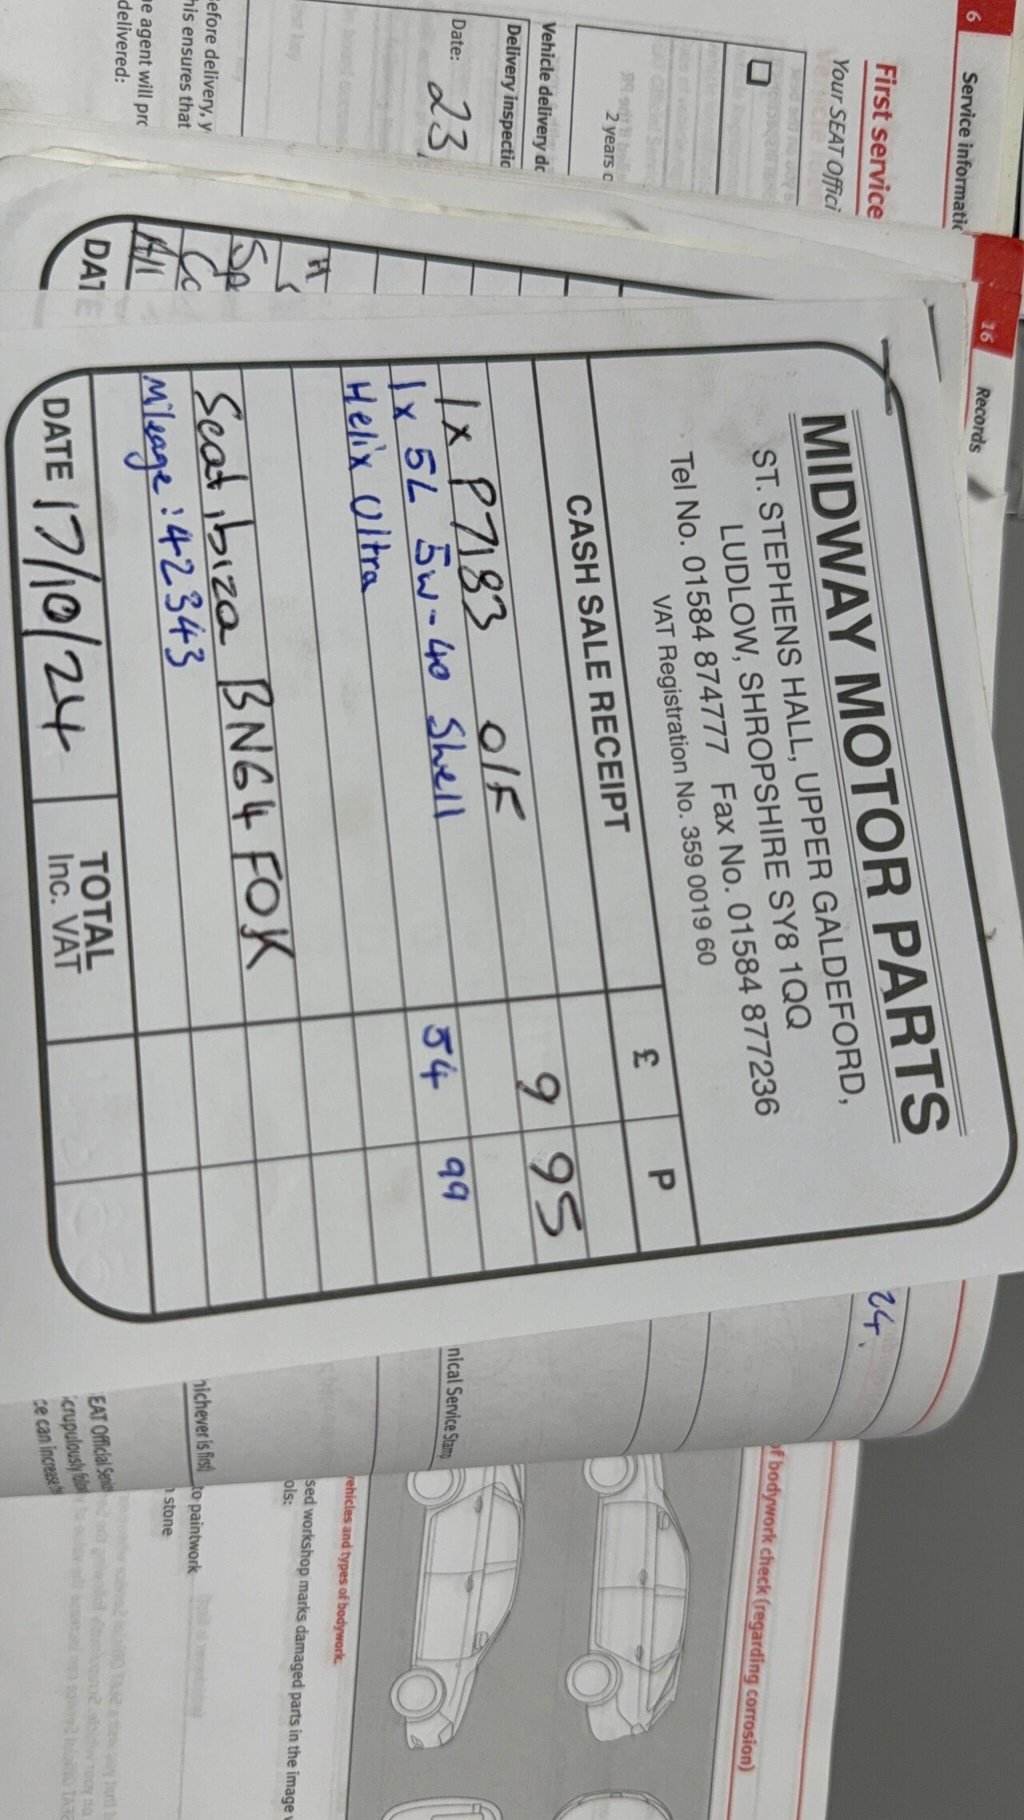 MIDWAY MOTOR PARTS
ST. STEPHENS HALL, UPPER GALDEFORD,
LUDLOW, SHROPSHIRE SY8 1QQ
Tel No. 01584 874777 Fax No. 01584 877236
VAT Registration No. 359 0019 60
CASH SALE RECEIPT £ P
1x P7183 O/F 9 95
1x 5L 5W-40 Shell 54 99
Helix Ultra
Seat ibiza BN64 FOK
Mileage: 42343
DATE 17/10/24 TOTAL
Inc. VAT
6 Service informatic
First service
Your SEAT Offici
2 years o
Vehicle delivery dc
Delivery inspectic
Date: 23
efore delivery, y
his ensures that
e agent will pro
delivered:
16 Records
H
Sp
Cc
All
DATE
24.
nical Service Stamp
hichever is first
EAT Official Servi
crupulously
ce can increase
of bodywork check (regarding corrosion)
vehicles and types of bodywork.
sed workshop marks damaged parts in the image
ols:
to paintwork
stone